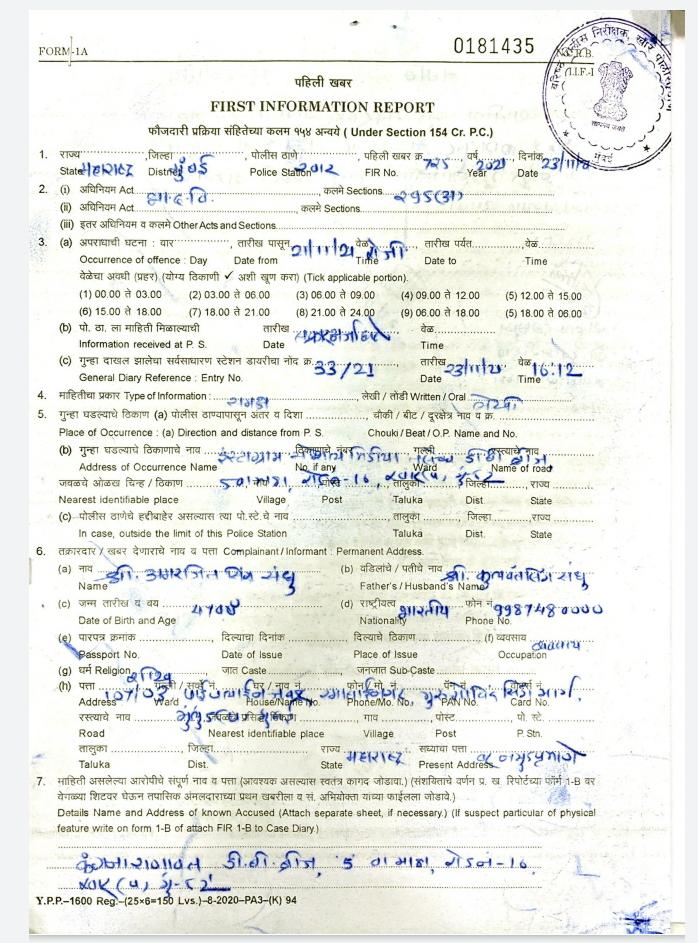 FORM-1A
0181435
N.C.R.B.
I.I.F.-I
पहिली खबर
FIRST INFORMATION REPORT
फौजदारी प्रक्रिया संहितेच्या कलम १५४ अन्वये ( Under Section 154 Cr. P.C.)
1. राज्य ,जिल्हा पोलीस ठाणे पहिली खबर क्र. 725 वर्ष 2021 दिनांक 23/11/21
State महाराष्ट्र District मुंबई Police Station FIR No. Year Date
2. (i) अधिनियम Act भा.द.वि. कलमे Sections 295(अ)
(ii) अधिनियम Act , कलमे Sections
(iii) इतर अधिनियम व कलमे Other Acts and Sections
3. (a) अपराधाची घटना : वार , तारीख पासून 21/11/21 रोजी वेळ तारीख पर्यंत , वेळ
Occurrence of offence : Day Date from Time Date to Time
वेळेचा अवधी (प्रहर) (योग्य ठिकाणी ✓ अशी खूण करा) (Tick applicable portion).
(1) 00.00 ते 03.00 (2) 03.00 ते 06.00 (3) 06.00 ते 09.00 (4) 09.00 ते 12.00 (5) 12.00 ते 15.00
(6) 15.00 ते 18.00 (7) 18.00 ते 21.00 (8) 21.00 ते 24.00 (9) 06.00 ते 18.00 (5) 18.00 ते 06.00
(b) पो. ठा. ला माहिती मिळाल्याची तारीख वेळ
Information received at P. S. Date Time
(c) गुन्हा दाखल झालेचा सर्वसाधारण स्टेशन डायरीचा नोंद क्र. 33/21 तारीख 23/11/21 वेळ 16:12
General Diary Reference : Entry No. Date Time
4. माहितीचा प्रकार Type of Information : लेखी / तोंडी Written / Oral लेखी
5. गुन्हा घडल्याचे ठिकाण (a) पोलीस ठाण्यापासून अंतर व दिशा , चौकी / बीट / दूरक्षेत्र नाव व क्र.
Place of Occurrence : (a) Direction and distance from P. S. Chouki / Beat / O.P. Name and No.
(b) गुन्हा घडल्याचे ठिकाणाचे नाव इंस्टाग्राम ठिकाणाचे नंबर गल्ली रस्त्याचे नाव
Address of Occurrence Name No. if any Ward Name of road
जवळचे ओळख चिन्ह / ठिकाण तालुका जिल्हा , राज्य
Nearest identifiable place Village Post Taluka Dist. State
(c) पोलीस ठाणेचे हद्दीबाहेर असल्यास त्या पो.स्टे.चे नाव तालुका जिल्हा राज्य
In case, outside the limit of this Police Station Taluka Dist. State
6. तक्रारदार / खबर देणाराचे नाव व पत्ता Complainant / Informant : Permanent Address.
(a) नाव श्री. अमरजित सिंग संधु (b) वडिलांचे / पतीचे नाव श्री. कुलवंतसिंग संधु
Name Father's / Husband's Name
(c) जन्म तारीख व वय 47 वर्षे (d) राष्ट्रीयत्व भारतीय फोन नं 9987480000
Date of Birth and Age Nationality Phone No.
(e) पारपत्र क्रमांक दिल्याचा दिनांक दिल्याचे ठिकाण (f) व्यवसाय व्यवसाय
Passport No. Date of Issue Place of Issue Occupation
(g) धर्म Religion शीख जात Caste जनजात Sub-Caste
(h) पत्ता गल्ली / सर्व्हे नं. घर / नाव नं. फोन/ मो. नं. पॅन नं.
Address Ward House/Name No. Phone/Mo. No. PAN No. Card No.
रस्त्याचे नाव गाव , पोस्ट पो. स्टे.
Road Nearest identifiable place Village Post P. Stn.
तालुका , जिल्हा राज्य महाराष्ट्र सध्याचा पत्ता
Taluka Dist. State Present Address
7. माहिती असलेल्या आरोपीचे संपूर्ण नाव व पत्ता (आवश्यक असल्यास स्वतंत्र कागद जोडावा.) (संशयिताचे वर्णन प्र. ख. रिपोर्टच्या फॉर्म 1-B वर
वेगळ्या शिटवर घेऊन तपासिक अंमलदाराच्या प्रथम खबरीला व सं. अभियोक्ता यांच्या फाईलला जोडावे.)
Details Name and Address of known Accused (Attach separate sheet, if necessary.) (If suspect particular of physical
feature write on form 1-B of attach FIR 1-B to Case Diary.)
कंगना राणावत डी.बी. ब्रीज, 5 वा माळा, रोड नं-16,
खार (प) मुं-52
Y.P.P.–1600 Reg.–(25×6=150 Lvs.)–8-2020–PA3–(K) 94